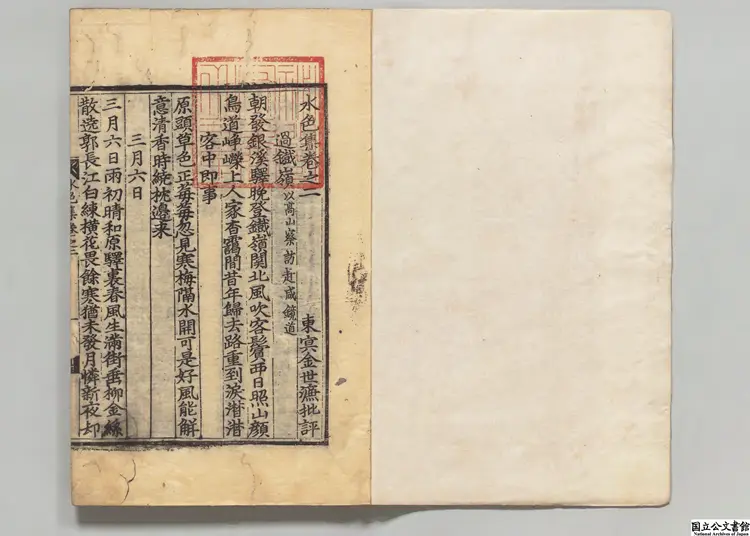 水色集卷之二 東冥金世濂批評
過鐵嶺 以高山察訪赴咸鏡道
朝發銀溪驛晚登鐵嶺關北風吹客鬢西日照山顏
鳥道崢嶸上人家杳靄間昔年歸去路重到淚潸潸
客中即事
原頭草色正莓莓忽見寒梅隔水開可是好風能解
意清香時繞枕邊來
三月六日
三月六日雨初晴和原驛裏春風生滿街垂柳金絲
散遶郭長江白練橫花畏餘寒猶未發月憐新夜却
水色集卷之二
国立公文書館
National Archives of Japan